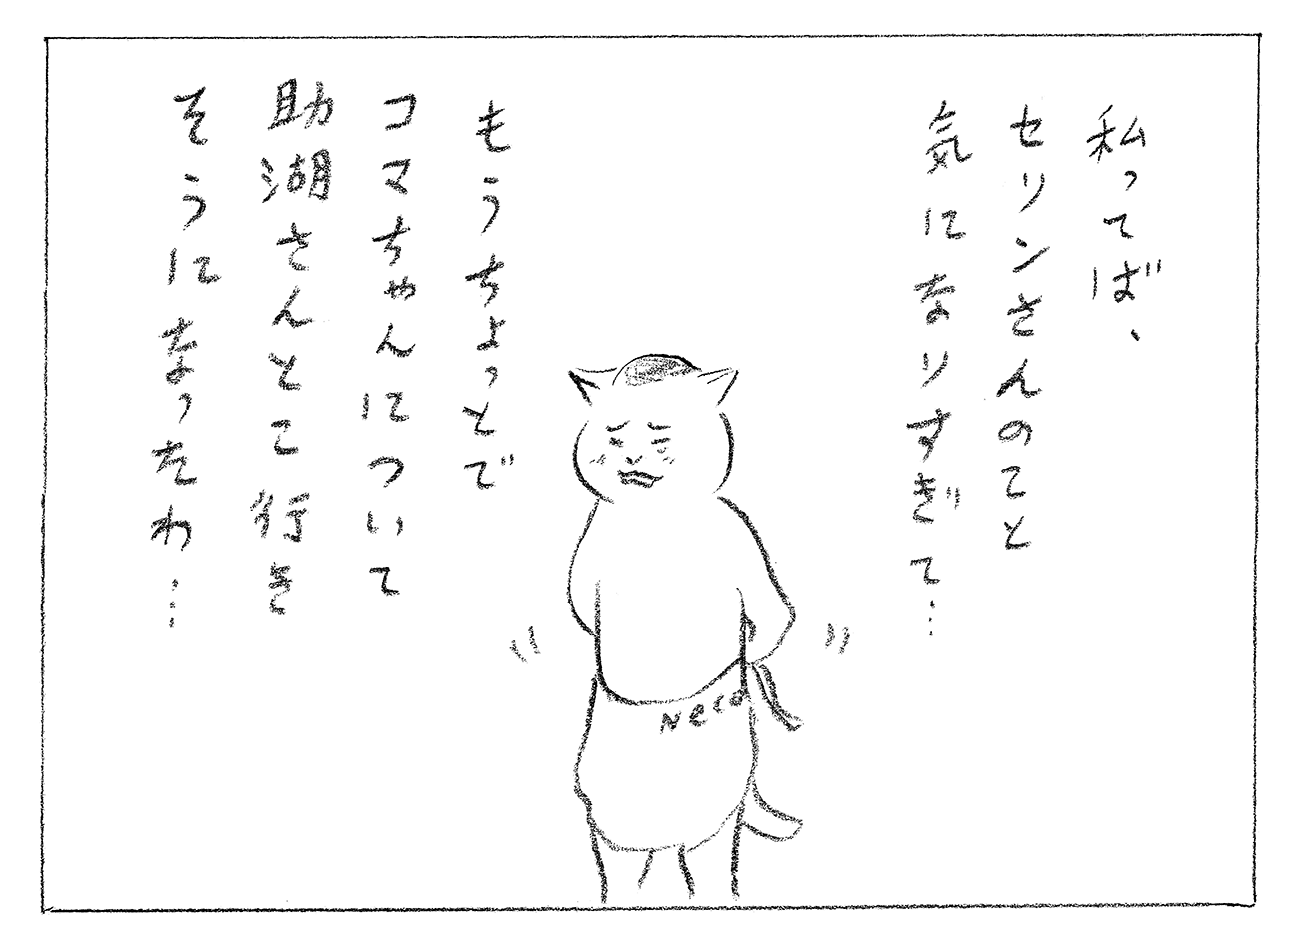 私ってば、
セリンさんのこと
気になりすぎて…
もうちょっとで
コマちゃんについて
助湖さんとこ行き
そうになったわ…
Neco